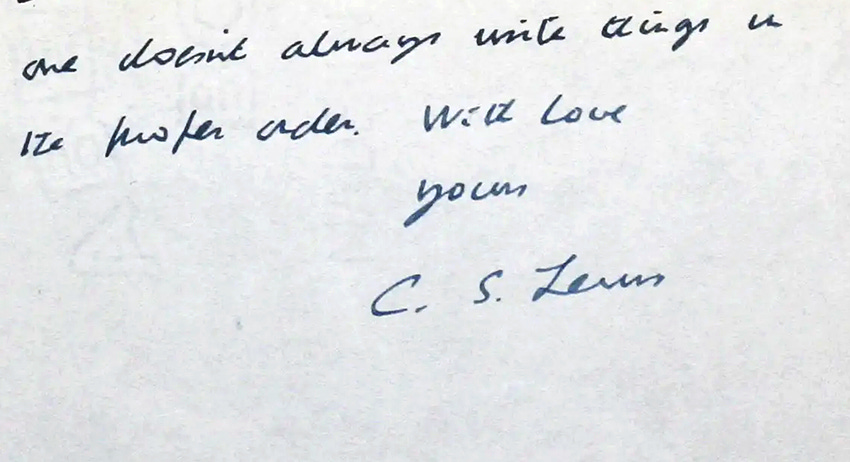 one doesn't always write things in
the proper order. With love
yours
C. S. Lewis